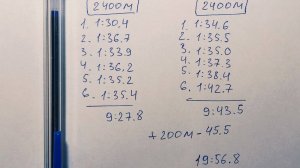 2400м
1. 1:30.4
2. 1:36.7
3. 1:33.9
4. 1:36.2
5. 1:35.2
6. 1:35.4
9:27.8
2400м
1. 1:34.6
2. 1:35.5
3. 1:35.0
4. 1:37.3
5. 1:38.4
6. 1:42.7
9:43.5
+ 200м - 45.5
19:56.8